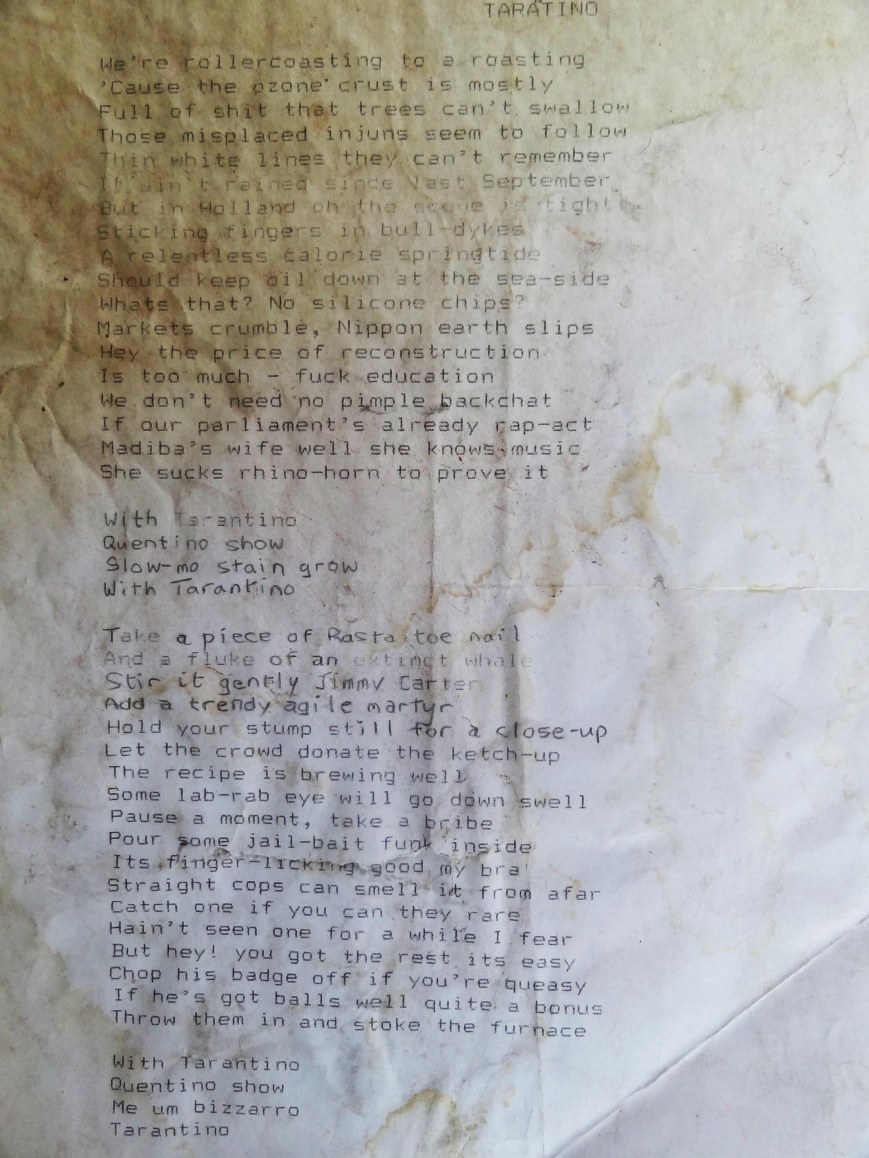 TARATINO
We're rollercoasting to a roasting
'Cause the ozone crust is mostly
Full of shit that trees can't swallow
Those misplaced injuns seem to follow
Thin white lines they can't remember
It ain't rained since last September
But in Holland oh the scene is tight
Sticking fingers in bull-dykes
A relentless calorie springtide
Should keep oil down at the sea-side
Whats that? No silicone chips?
Markets crumble, Nippon earth slips
Hey the price of reconstruction
Is too much - fuck education
We don't need no pimple backchat
If our parliament's already rap-act
Madiba's wife well she knows music
She sucks rhino-horn to prove it
With Tarantino
Quentino show
Slow-mo stain grow
With Tarantino
Take a piece of Rasta toe nail
And a fluke of an extinct whale
Stir it gently Jimmy Carter
Add a trendy agile martyr
Hold your stump still for a close-up
Let the crowd donate the ketch-up
The recipe is brewing well
Some lab-rab eye will go down swell
Pause a moment, take a bribe
Pour some jail-bait funk inside
Its finger-licking good my bra
Straight cops can smell it from afar
Catch one if you can they rare
Hain't seen one for a while I fear
But hey! you got the rest its easy
Chop his badge off if you're queasy
If he's got balls well quite a bonus
Throw them in and stoke the furnace
With Tarantino
Quentino show
Me um bizzarro
Tarantino